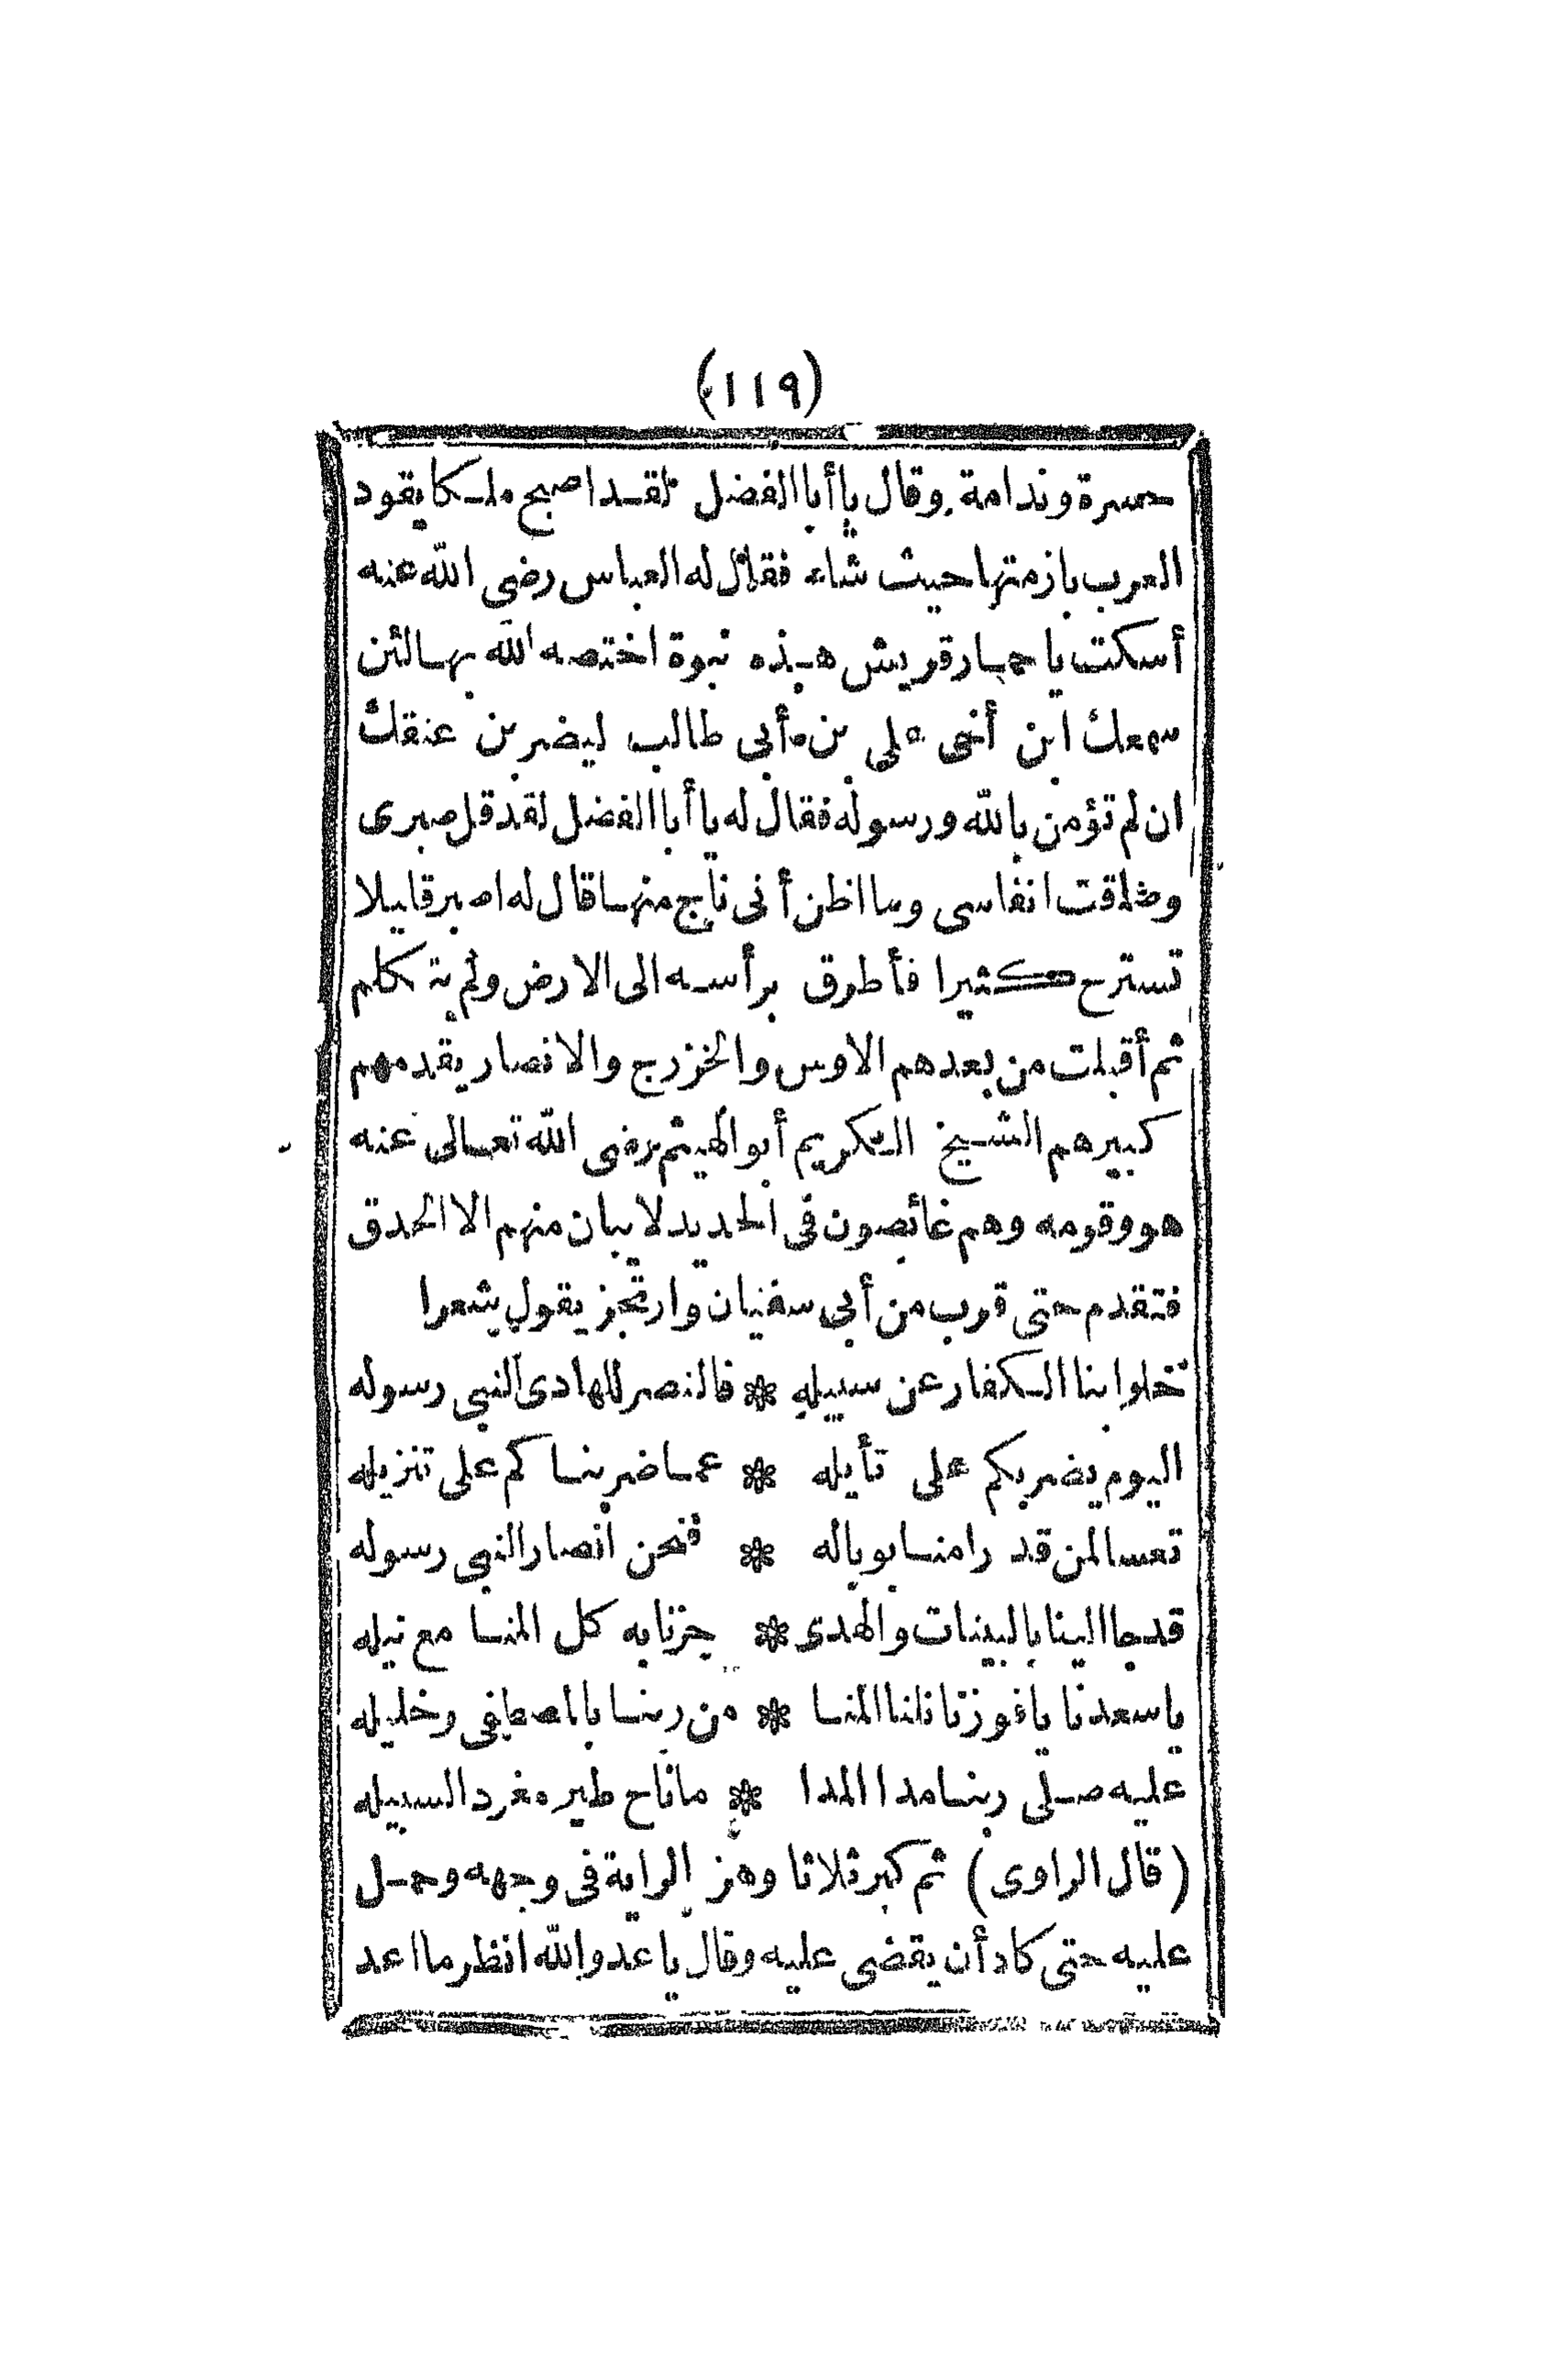 (١١٩)
حسرة وندامة وقال يا أبا الفضل لقد اصبح ملكا يقود
العرب بازمتها حيث شاء فقال له العباس رضى الله عنه
أسكت يا حمار قريش هذه نبوة اختصه الله بها لئن
سمعك ابن أخى على بن أبى طالب ليضربن عنقك
ان لم تؤمن بالله ورسوله فقال له يا أبا الفضل لقد قل صبرى
وضاقت انفاسى وما اظن أنى ناج منها قال له اصبر قليلا
تسترح كثيرا فأطرق برأسه الى الارض ولم يتكلم
ثم أقبلت من بعدهم الاوس والخزرج والانصار يقدمهم
كبيرهم الشيخ الكريم أبو الهيثم رضى الله تعالى عنه
هو وقومه وهم غائصون فى الحديد لا يبان منهم الا الحدق
فتقدم حتى قرب من أبى سفيان وارتجز يقول شعرا
خلوا بنا الكفار عن سبيله * فالنصر للهادى النبى رسوله
اليوم يضربكم على تأيله * عما ضربنا كم على تنزيله
تعسا لمن قد رامنا بوباله * فنحن انصار النبى رسوله
قد جا الينا بالبينات والهدى * حزنا به كل المنا مع نيله
يا سعدنا يا فوزنا نلنا المنا * من ربنا بالمصطفى وخليله
عليه صلى ربنا مدا المدا * ما ناح طير مغرد السبيله
(قال الراوى) ثم كبر ثلاثا وهز الراية فى وجهه وحمل
عليه حتى كاد أن يقضى عليه وقال يا عدو الله انظر ما اعد